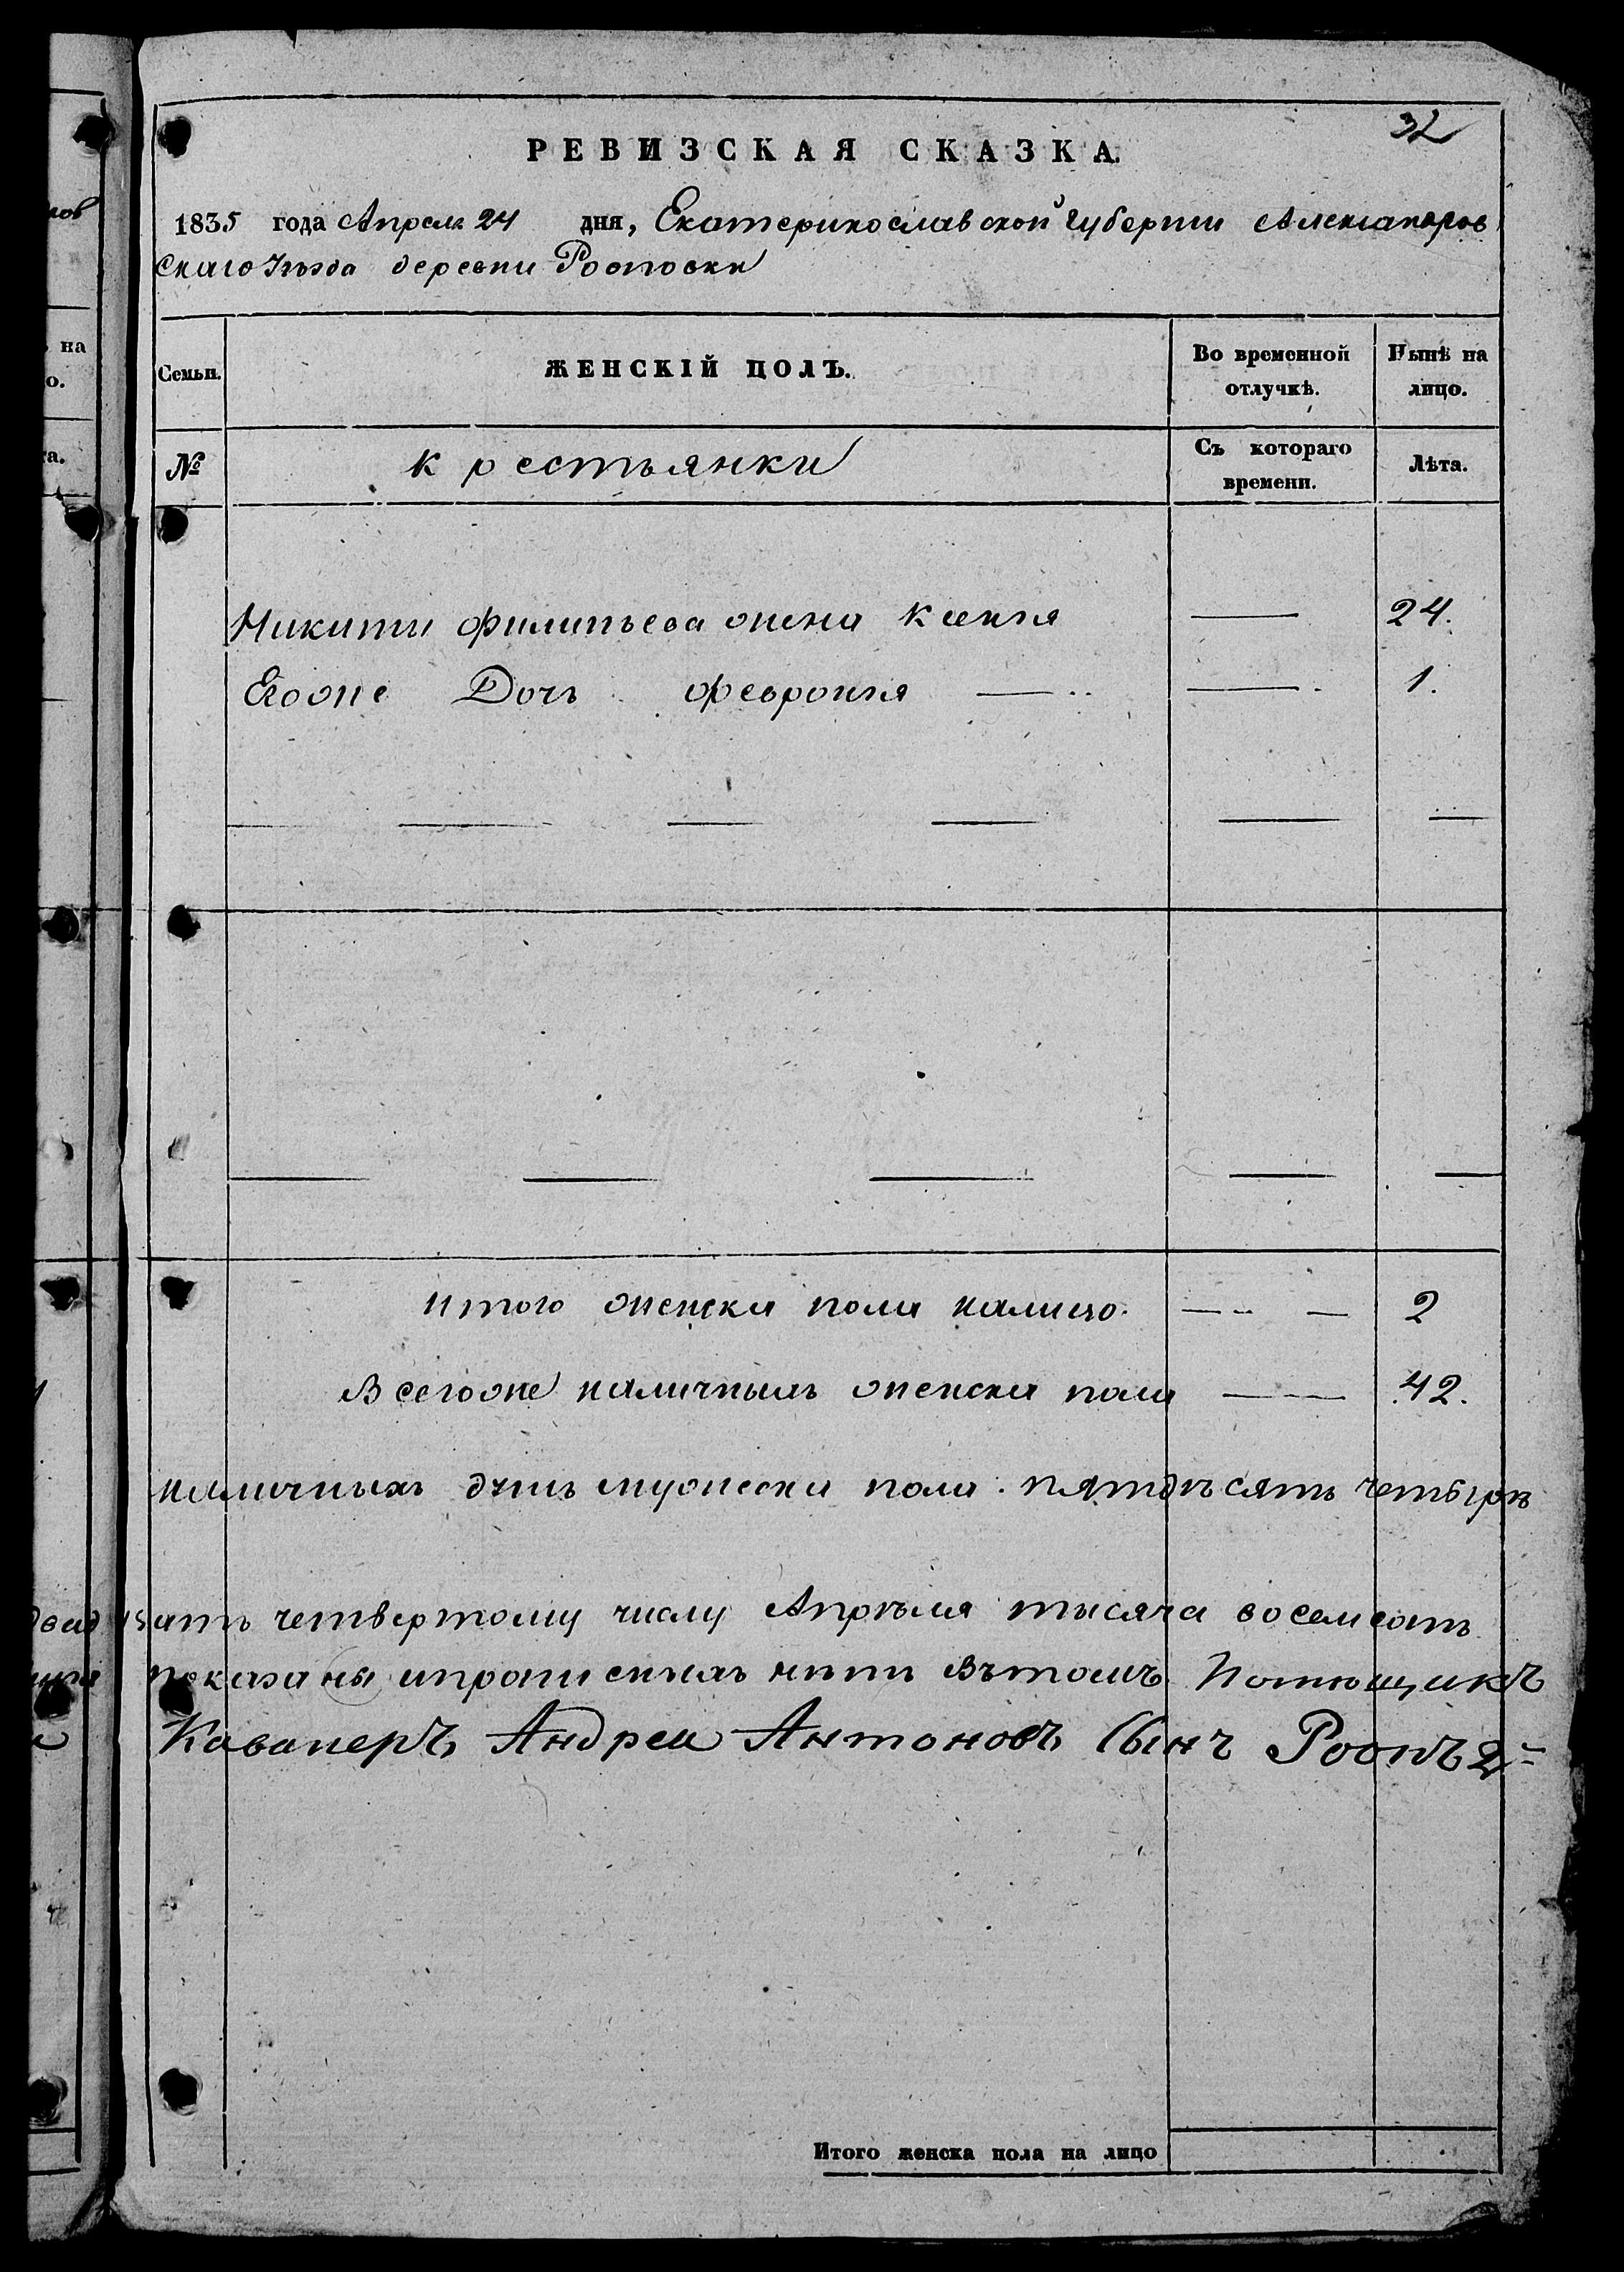 32
РЕВИЗСКАЯ СКАЗКА.
1835 года Апреля 24 дня, Екатеринославской губернии Александров
скаго уѣзда деревни Рооповки
ъ на
о.
Семьи.
ЖЕНСКІЙ ПОЛЪ.
Во временной отлучкѣ.
Нынѣ на лицо.
та.
№
крестьянки
Съ котораго времени.
Лѣта.
Никиты Филипьева жена Ксения — 24.
Егоже Дочь Феврония — — 1.
итого женска пола налицо — — 2
Всегоже наличныхъ женска пола — — 42.
наличныхъ душъ мужеска пола пятдѣсятъ четырѣ
двадцать четвертому числу Апрѣля тысяча восемсотъ
показаны ипрописныхъ нѣтъ Вътомъ Помѣщикъ
Кавалеръ Андреи Антоновъ Сынъ Роопъ 2й
Итого женска пола на лицо